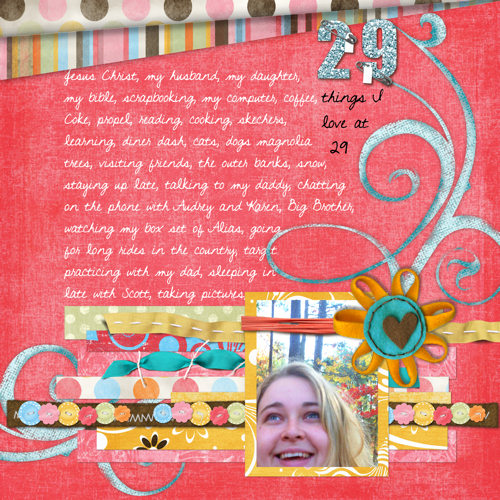 29
things I
love at
29
Jesus Christ, my husband, my daughter,
my bible, scrapbooking, my computer, coffee,
Coke, propel, reading, cooking, skechers,
learning, diner dash, cats, dogs magnolia
trees, visiting friends, the outer banks, snow,
staying up late, talking to my daddy, chatting
on the phone with Audrey and Karen, Big Brother,
watching my box set of Alias, going
for long rides in the country, target
practicing with my dad, sleeping in
late with Scott, taking pictures